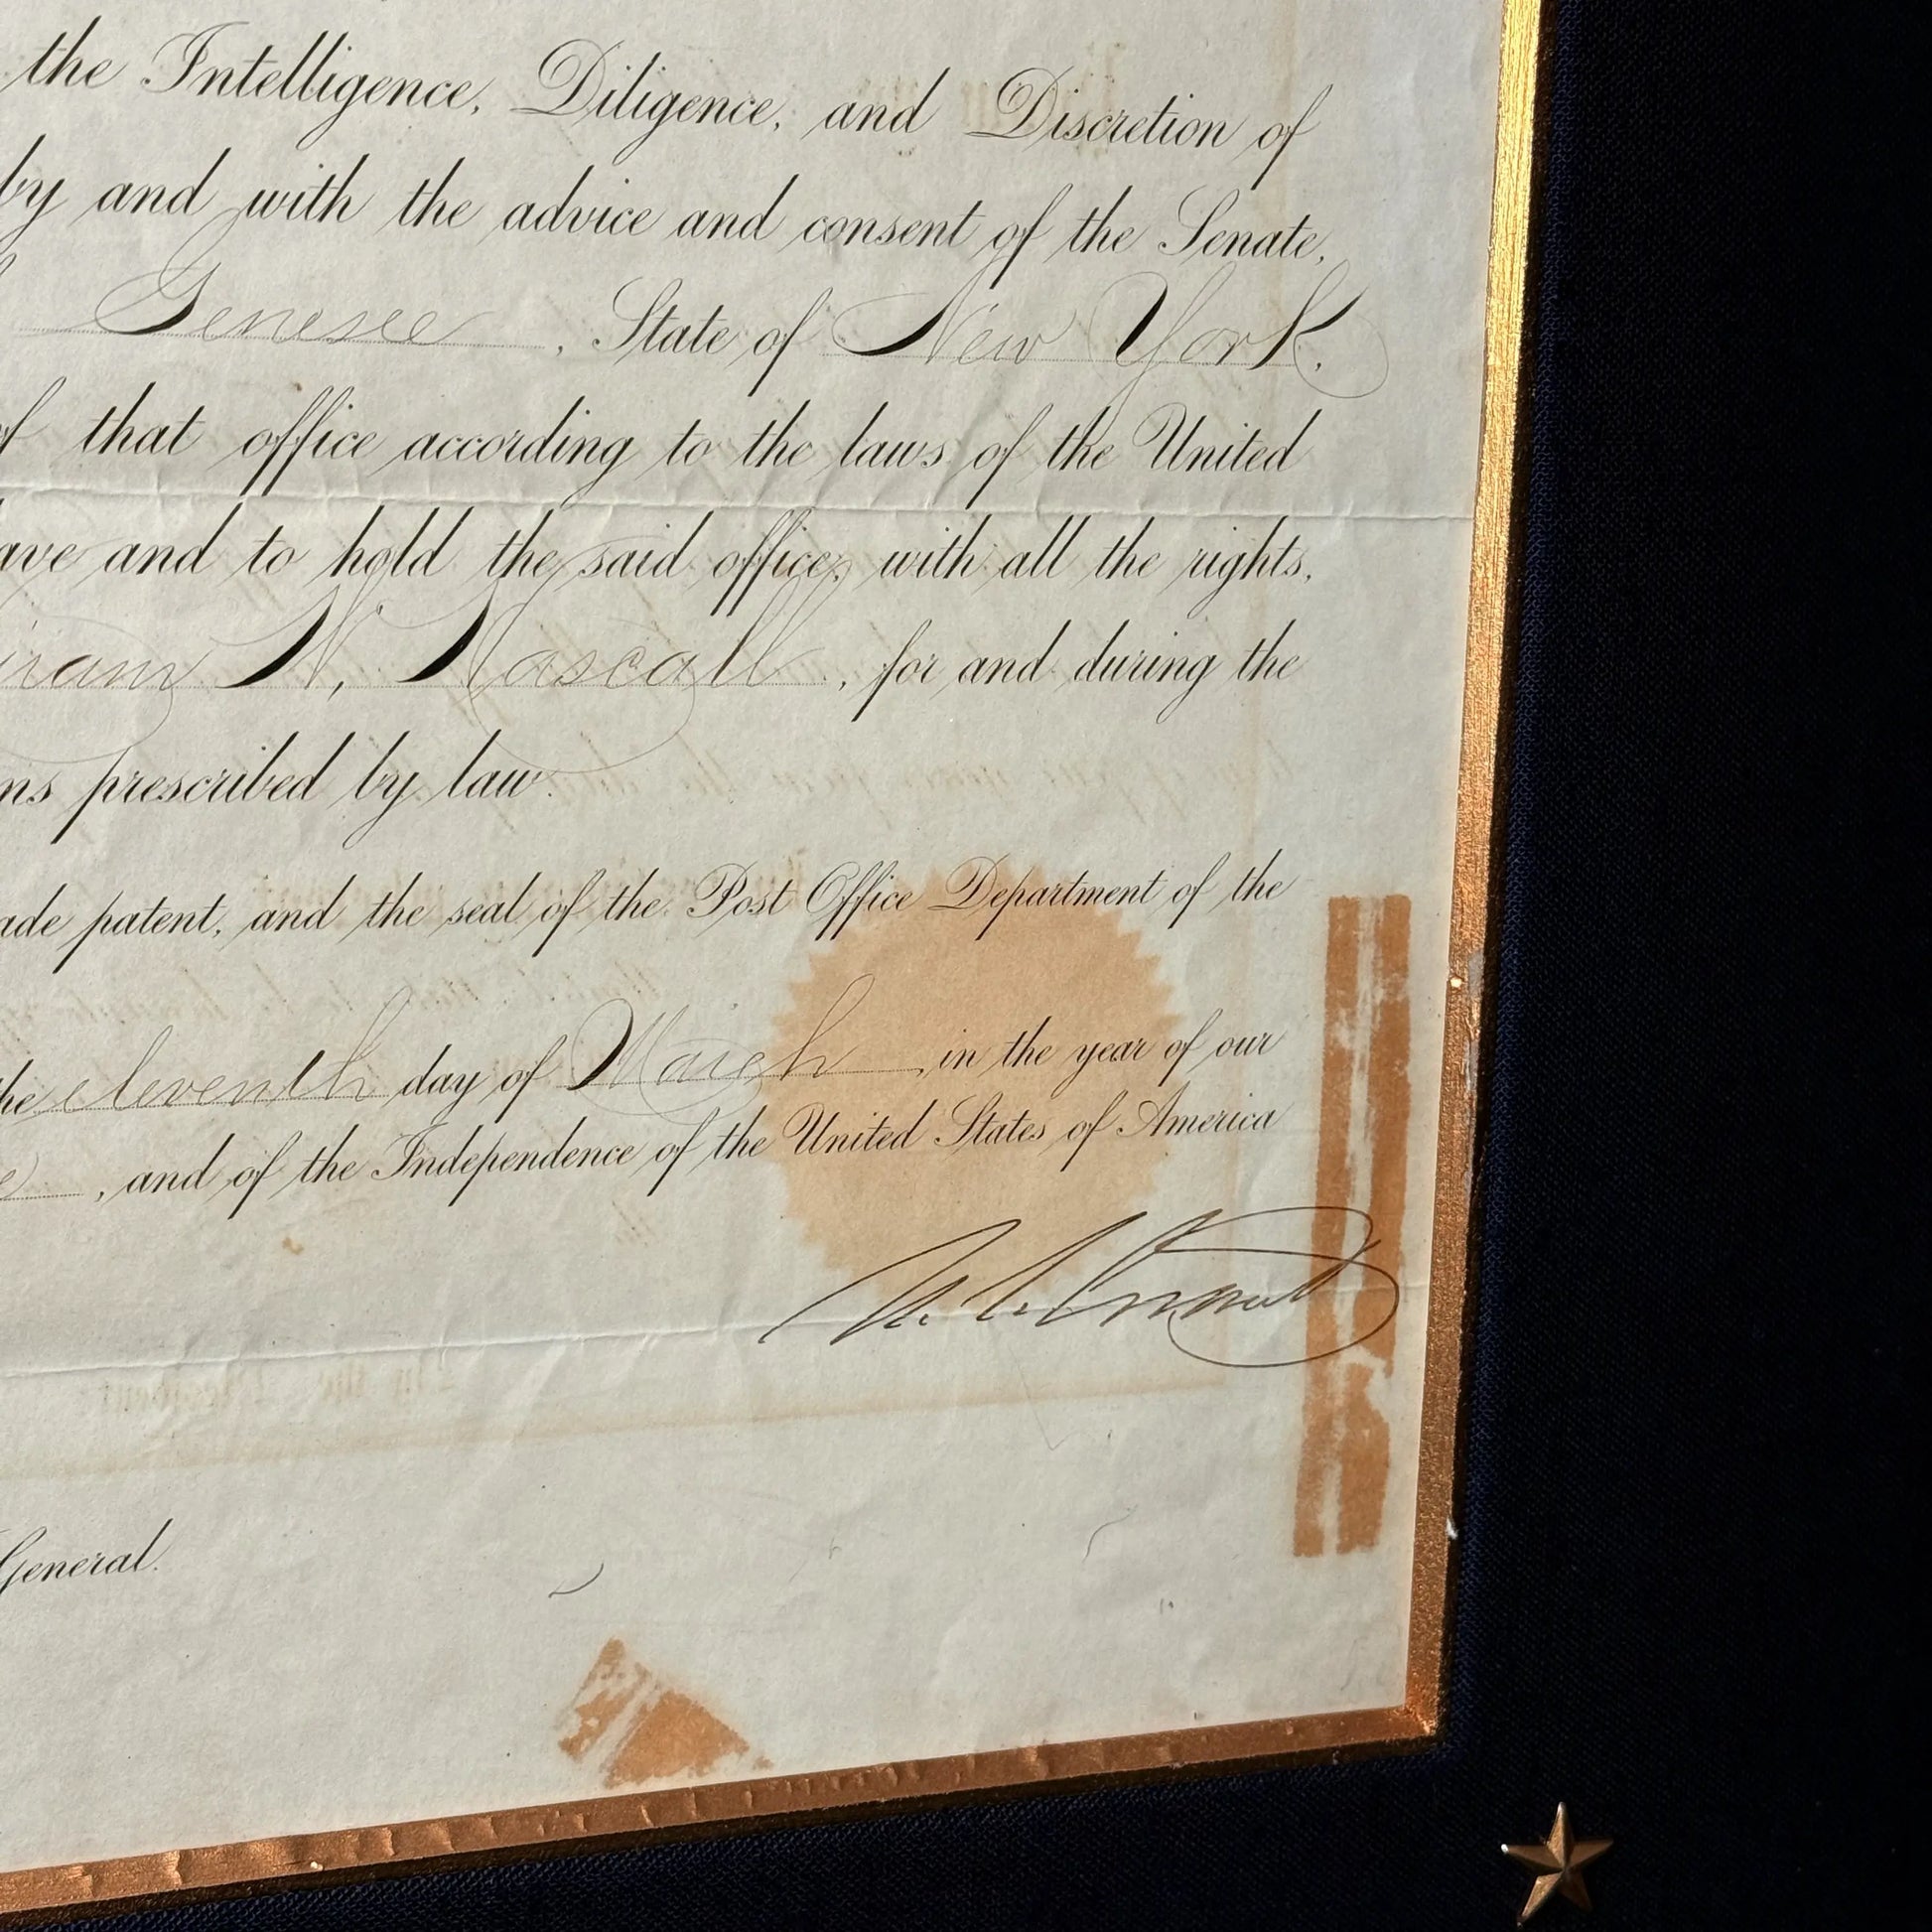 the Intelligence, Diligence, and Discretion of
by and with the advice and consent of the Senate,
Genesee, State of New York,
of that office according to the laws of the United
ave and to hold the said office, with all the rights,
iram N. Hascall, for and during the
ns prescribed by law.
ade patent, and the seal of the Post Office Department of the
he eleventh day of March, in the year of our
e, and of the Independence of the United States of America
U. S. Grant
General.